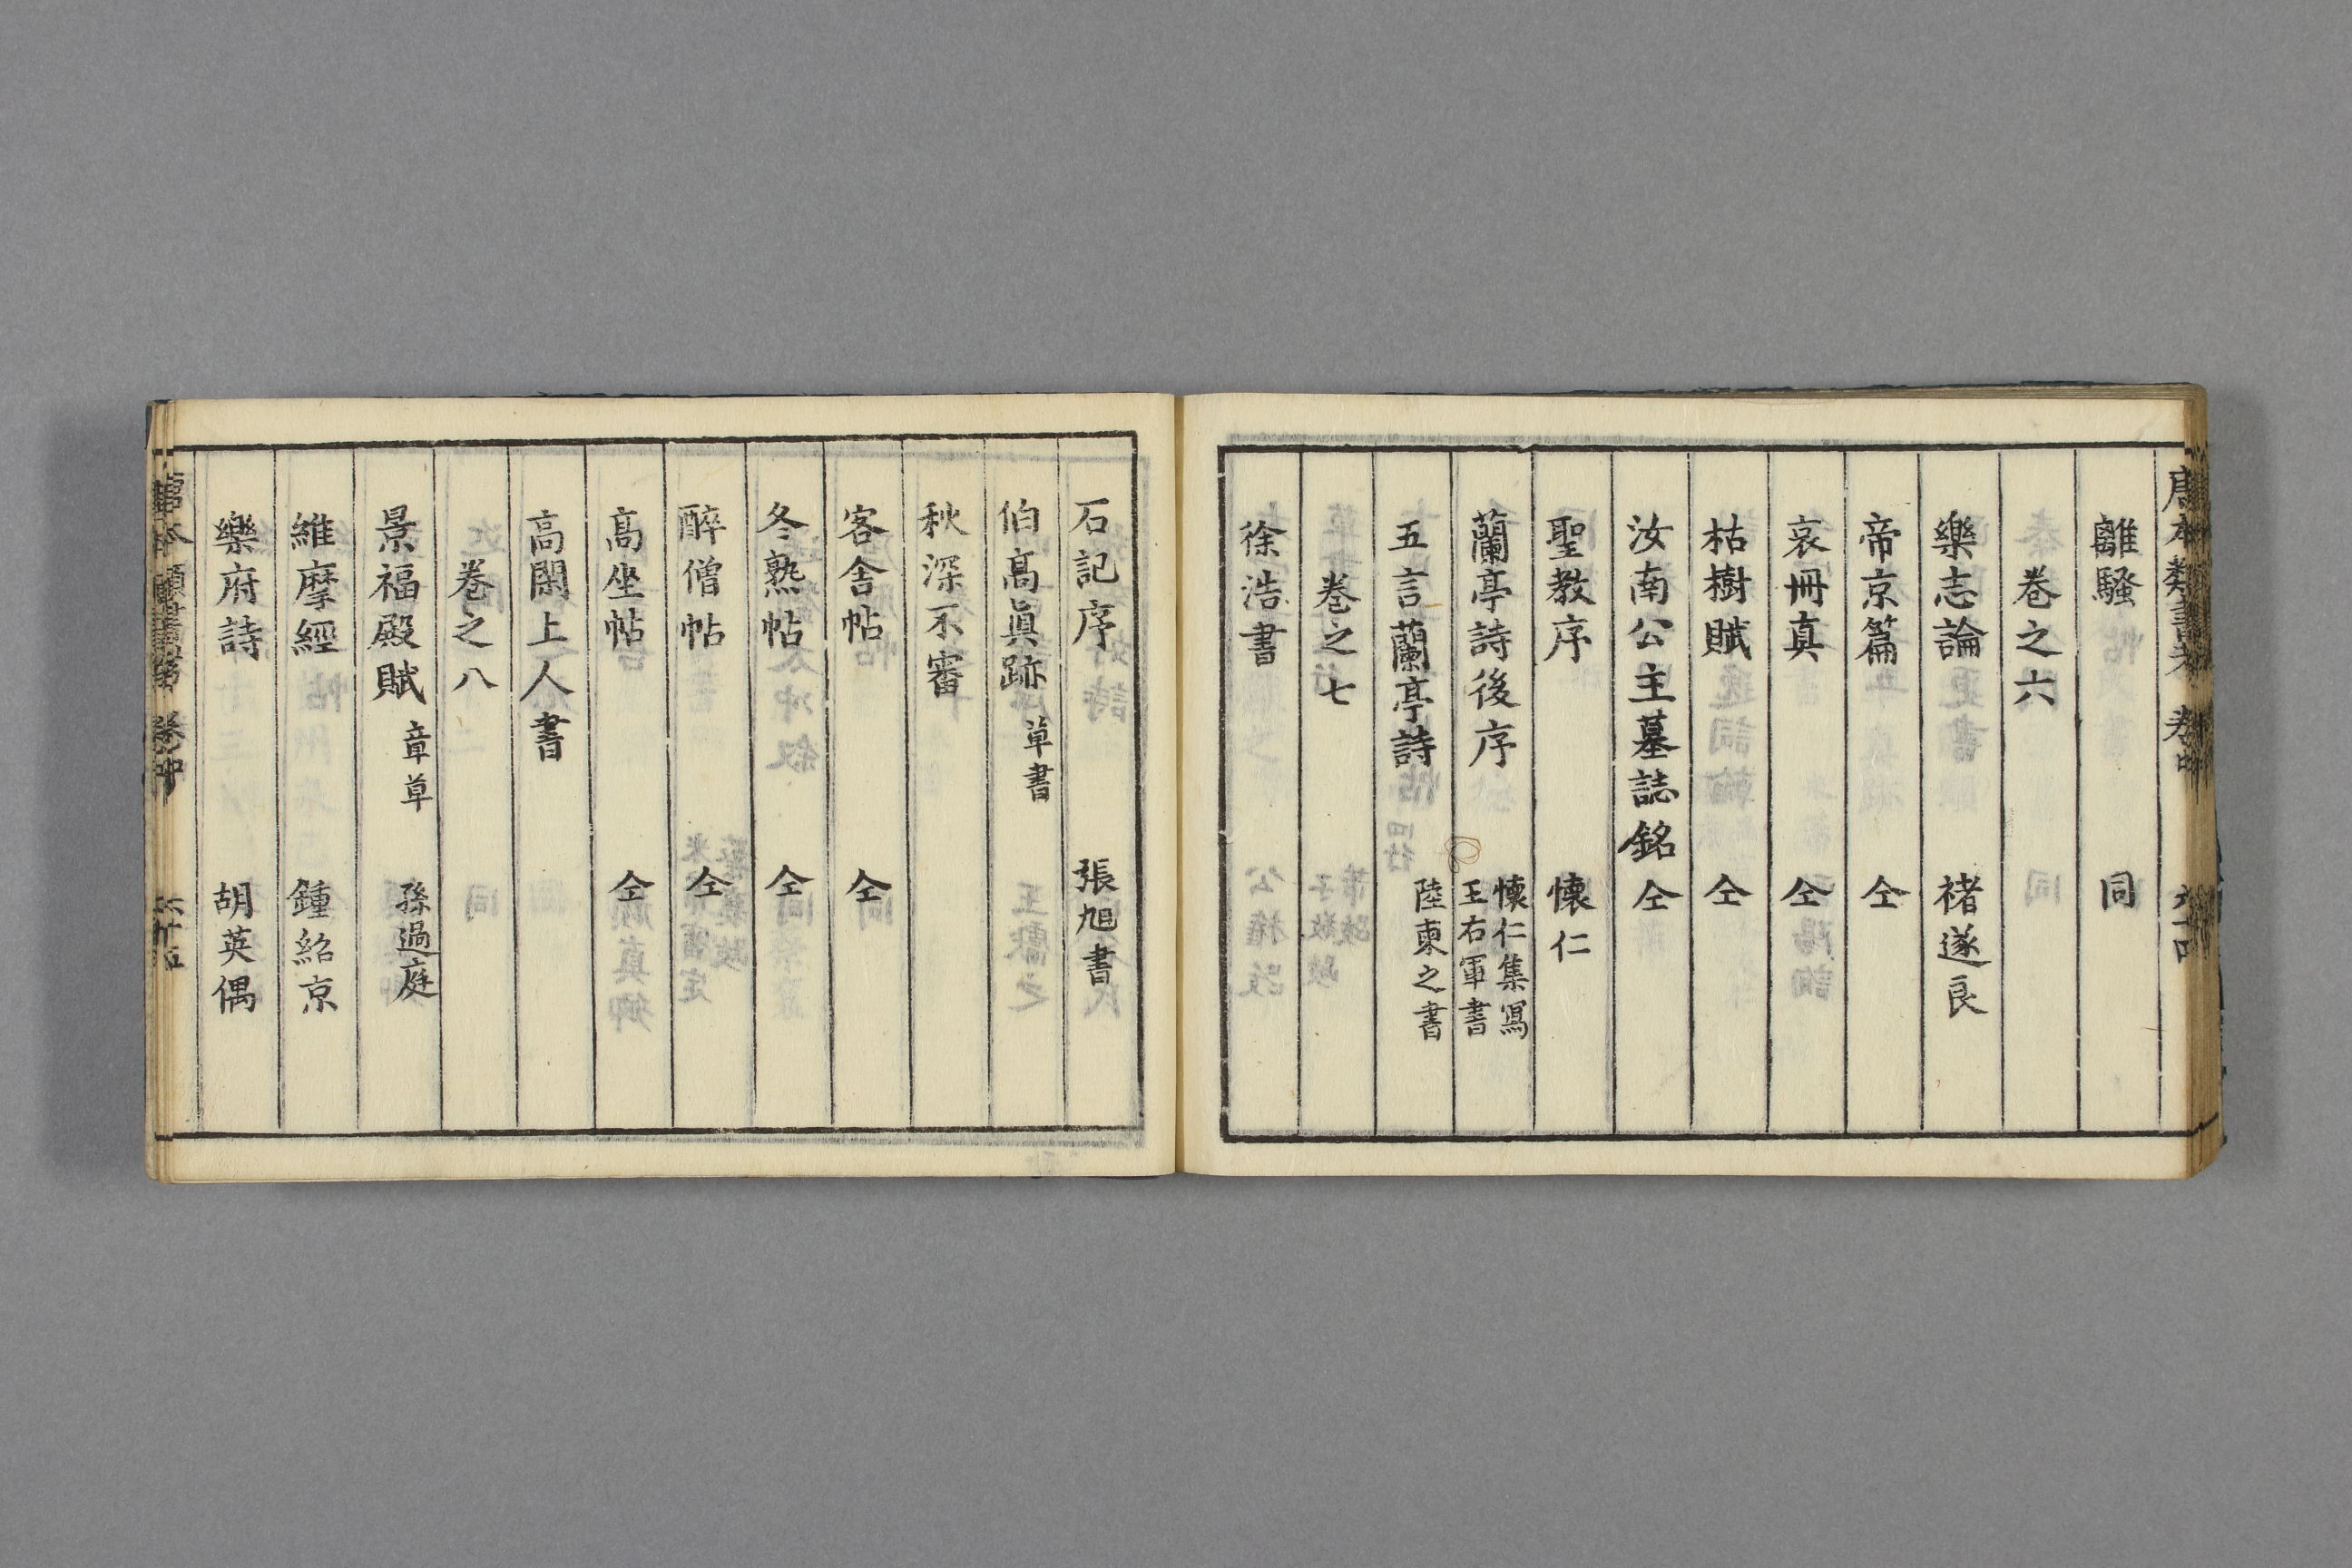 離騷 同
卷之六
樂志論 褚遂良
帝京篇 仝
哀冊真 仝
枯樹賦 仝
汝南公主墓誌銘 仝
聖教序 懷仁
蘭亭詩後序 懷仁集寫
王右軍書
五言蘭亭詩 陸柬之書
卷之七
徐浩書
石記序 張旭書
伯高眞跡 草書
秋深不審
客舍帖 仝
冬熟帖 仝
醉僧帖 仝
高坐帖 仝
高閑上人書
卷之八
景福殿賦 章草 孫過庭
維摩經 鍾紹京
樂府詩 胡英偶